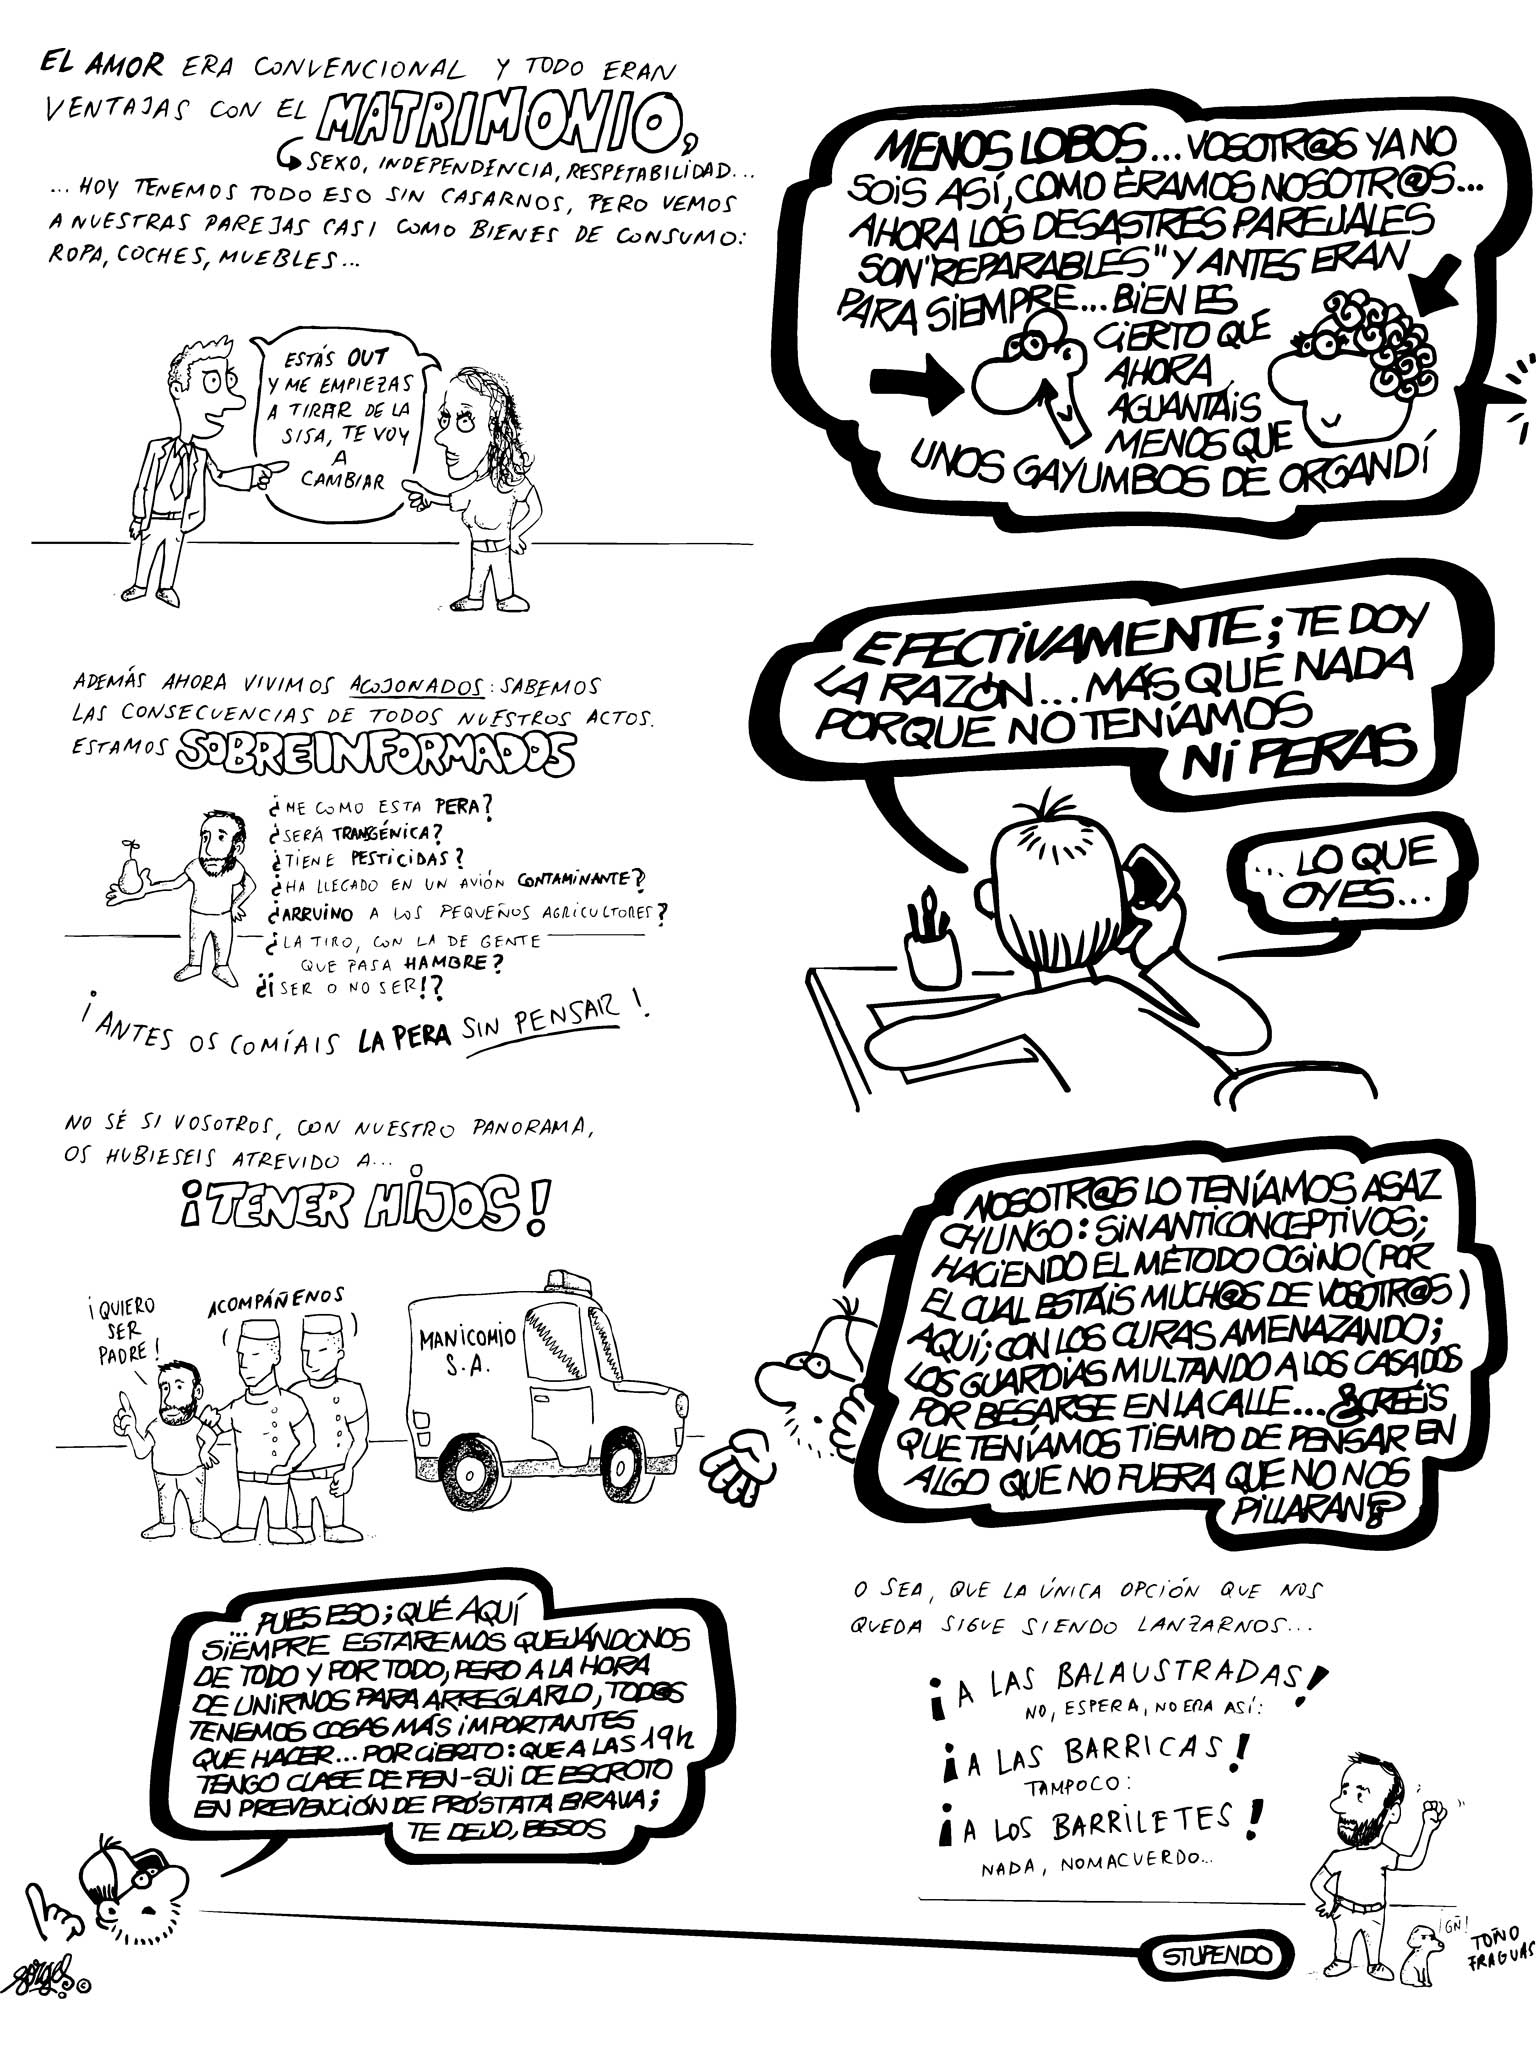 EL AMOR ERA CONVENCIONAL Y TODO ERAN
VENTAJAS CON EL MATRIMONIO,
SEXO, INDEPENDENCIA, RESPETABILIDAD...
...HOY TENEMOS TODO ESO SIN CASARNOS, PERO VEMOS
A NUESTRAS PAREJAS CASI COMO BIENES DE CONSUMO:
ROPA, COCHES, MUEBLES...
ESTÁS OUT
Y ME EMPIEZAS
A TIRAR DE LA
SISA, TE VOY
A
CAMBIAR
MENOS LOBOS... VOSOTR@S YA NO
SOIS ASÍ, COMO ÉRAMOS NOSOTR@S...
AHORA LOS DESASTRES PAREJALES
SON "REPARABLES" Y ANTES ERAN
PARA SIEMPRE... BIEN ES
CIERTO QUE
AHORA
AGUANTÁIS
MENOS QUE
UNOS GAYUMBOS DE ORGANDÍ
ADEMÁS AHORA VIVIMOS ACOJONADOS: SABEMOS
LAS CONSECUENCIAS DE TODOS NUESTROS ACTOS.
ESTAMOS SOBREINFORMADOS
¿ME COMO ESTA PERA?
¿SERÁ TRANSGÉNICA?
¿TIENE PESTICIDAS?
¿HA LLEGADO EN UN AVIÓN CONTAMINANTE?
¿ARRUINO A LOS PEQUEÑOS AGRICULTORES?
¿LA TIRO, CON LA DE GENTE
QUE PASA HAMBRE?
¿¡SER O NO SER!?
¡ANTES OS COMÍAIS LA PERA SIN PENSAR!
EFECTIVAMENTE; TE DOY
LA RAZÓN... MÁS QUE NADA
PORQUE NO TENÍAMOS
NI PERAS
... LO QUE
OYES...
NO SÉ SI VOSOTROS, CON NUESTRO PANORAMA,
OS HUBIESEIS ATREVIDO A...
¡TENER HIJOS!
¡QUIERO
SER
PADRE!
ACOMPÁÑENOS
MANICOMIO
S.A.
NOSOTR@S LO TENÍAMOS ASAZ
CHUNGO: SIN ANTICONCEPTIVOS;
HACIENDO EL MÉTODO OGINO (POR
EL CUAL ESTÁIS MUCH@S DE VOSOTR@S)
AQUÍ; CON LOS CURAS AMENAZANDO;
LOS GUARDIAS MULTANDO A LOS CASADOS
POR BESARSE EN LA CALLE... ¿CREÉIS
QUE TENÍAMOS TIEMPO DE PENSAR EN
ALGO QUE NO FUERA QUE NO NOS
PILLARAN?
... PUES ESO; QUÉ AQUÍ
SIEMPRE ESTAREMOS QUEJÁNDONOS
DE TODO Y POR TODO, PERO A LA HORA
DE UNIRNOS PARA ARREGLARLO, TOD@S
TENEMOS COSAS MÁS IMPORTANTES
QUE HACER... POR CIERTO: QUE A LAS 19h
TENGO CLASE DE FEN-SUI DE ESCROTO
EN PREVENCIÓN DE PRÓSTATA BRAVA;
TE DEJO, BESOS
forges ©
O SEA, QUE LA ÚNICA OPCIÓN QUE NOS
QUEDA SIGUE SIENDO LANZARNOS...
¡A LAS BALAUSTRADAS!
NO, ESPERA, NO ERA ASÍ:
¡A LAS BARRICAS!
TAMPOCO:
¡A LOS BARRILETES!
NADA, NOMACUERDO...
STUPENDO
¡GÑ!
TOÑO
FRAGUAS